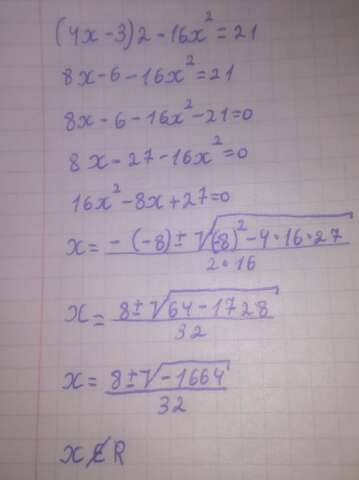 (4x-3)2-16x²=21
8x-6-16x²=21
8x-6-16x²-21=0
8x-27-16x²=0
16x²-8x+27=0
x=-(-8)±√(-8)²-4·16·27/2·16
x=8±√64-1728/32
x=8±√-1664/32
x∉R